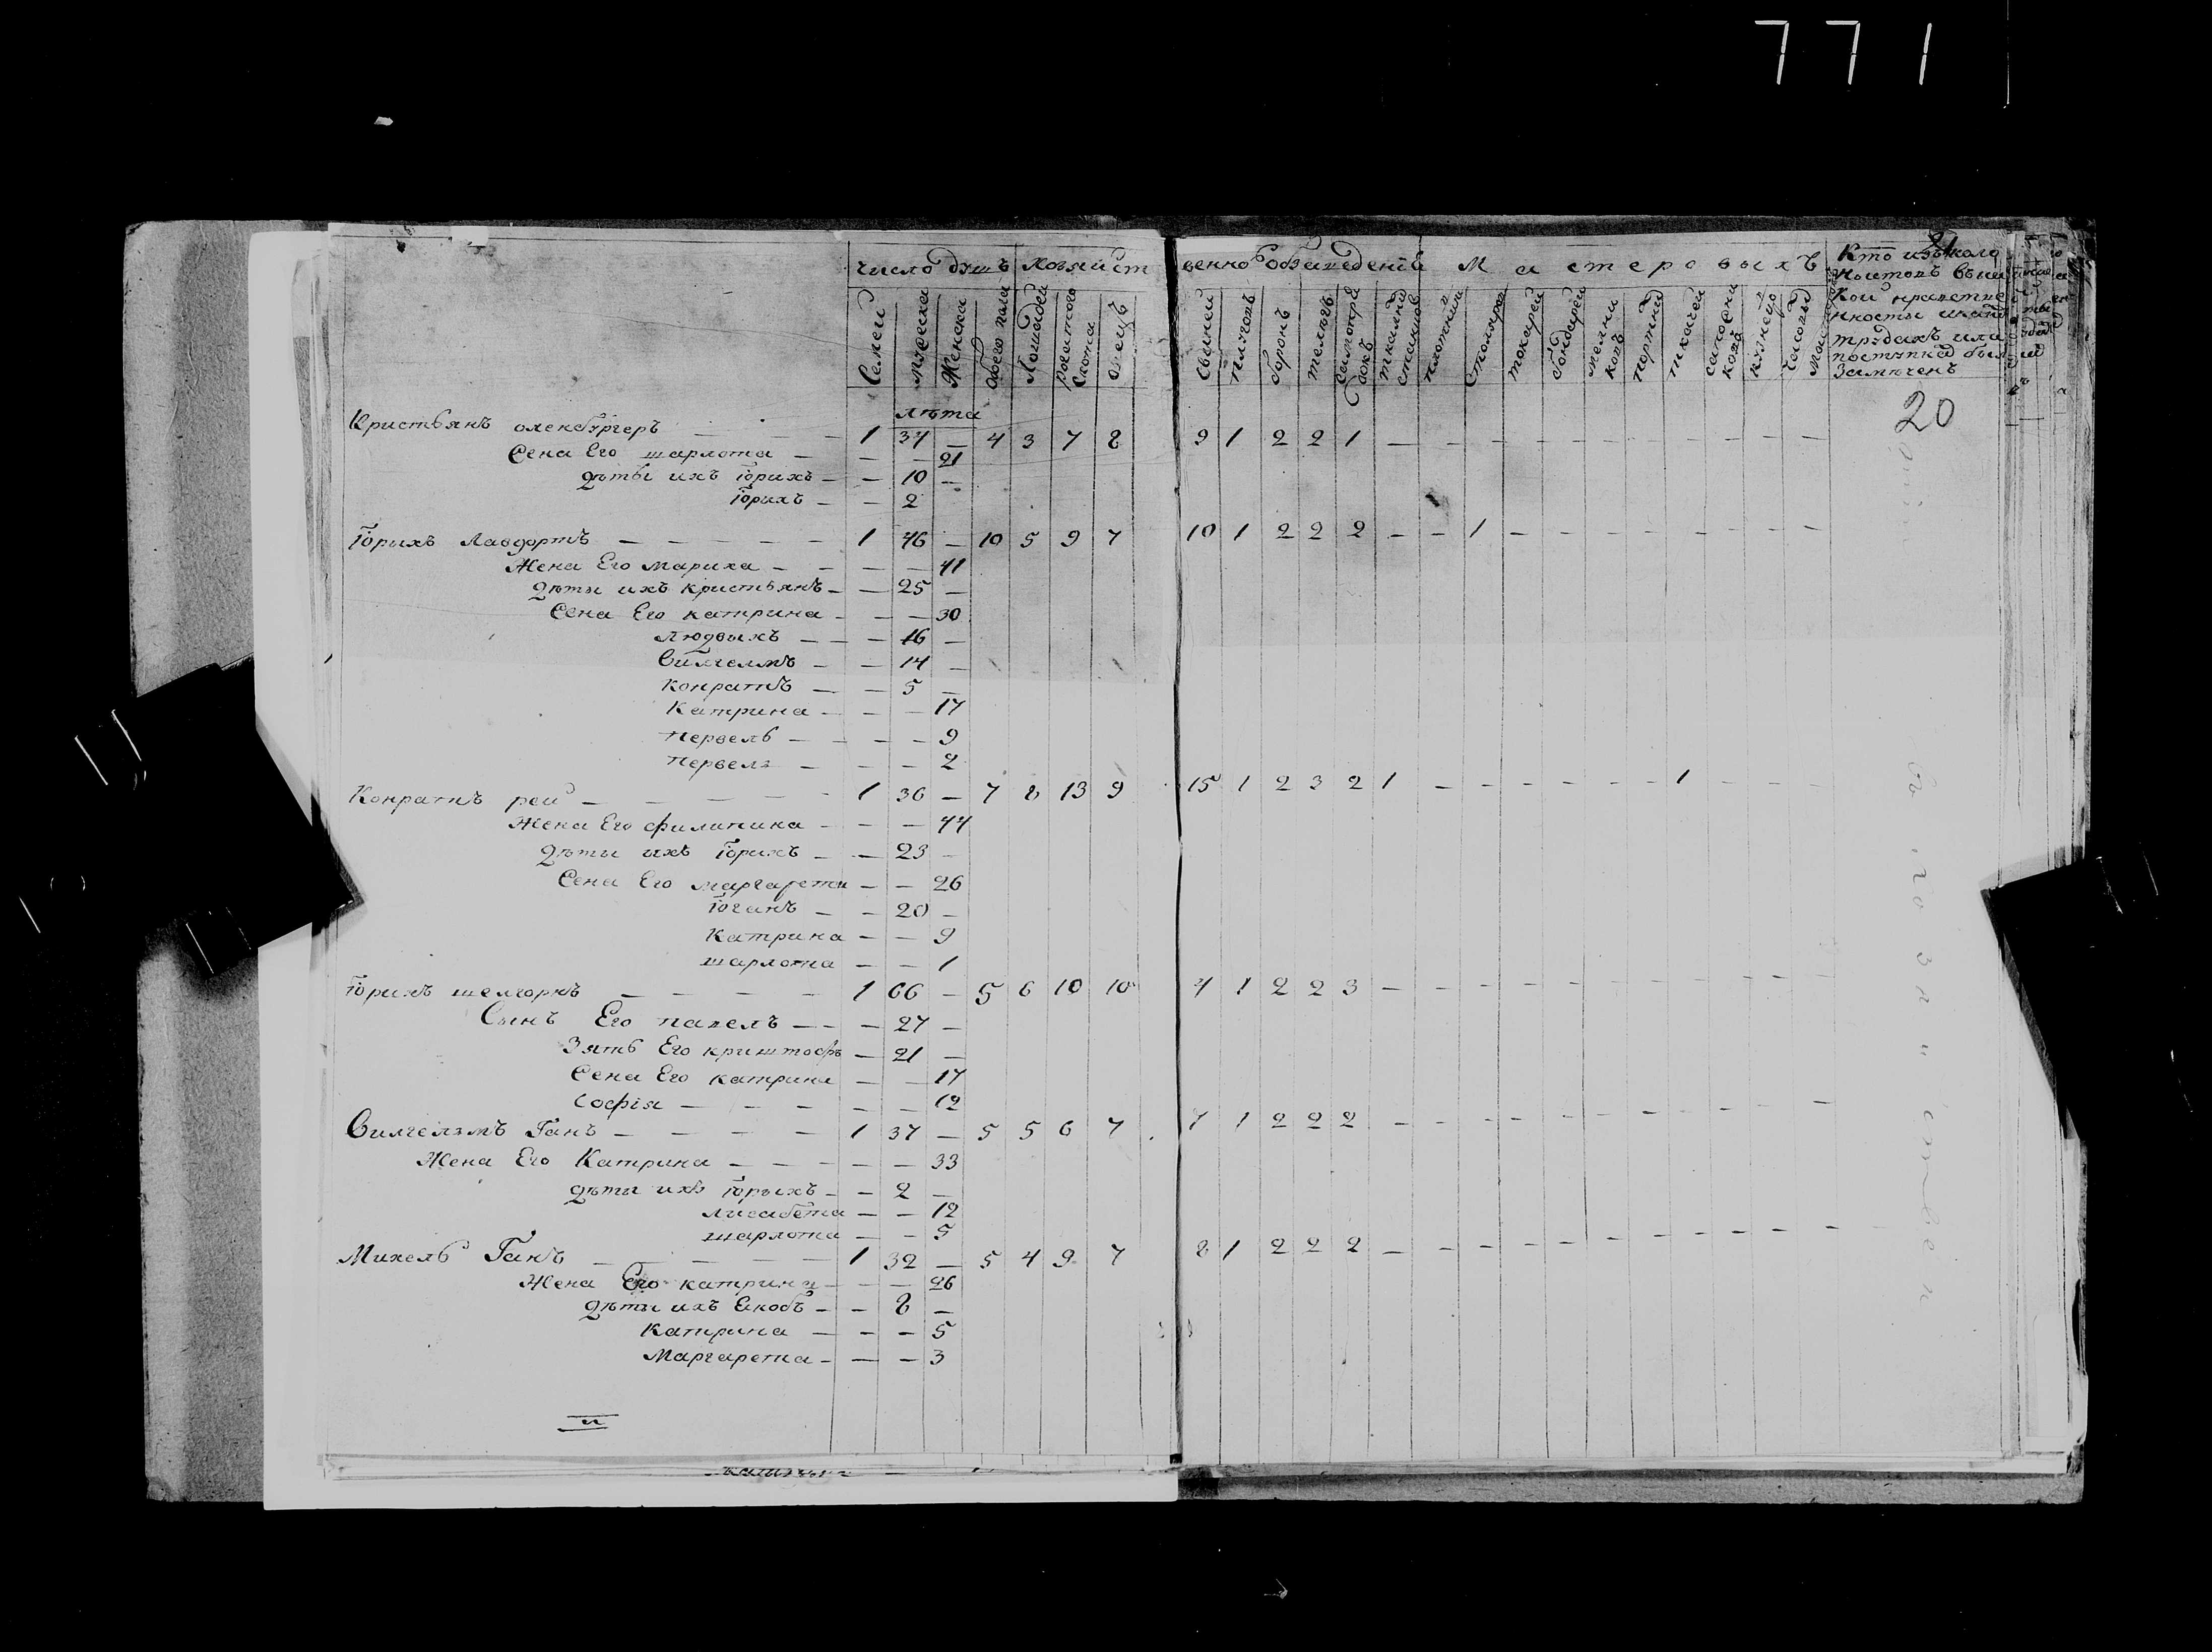 771
21
число душъ хозяйст венно Обзаведенїе Мастеровыхъ Кто изъ коло
Семей Мужеска Женска Обого пола Лошадей рогатого Скота Овецъ Свыней Плуговъ боронъ телѣгъ самопря локъ ткацкихъ становъ плотники столяров токарей бондарей мелни ковъ портных ткачей сапожни ковъ кузнецо
Замѣченъ
20
лѣта
Кристьянъ оленбургеръ — — — 1 37 — 4 3 7 8 9 1 2 2 1 — — — — — — — — — — —
Сена Его шарлота — — — 21
дѣты ихъ Їорихъ — — 10 —
Їорихъ — — 2
Їорыхъ Лавдортъ — — — — — 1 46 — 10 5 9 7 10 1 2 2 2 — — 1 — — — — — — — —
Жена Его Мариха — — — — 41
дѣты ихъ кристьянъ — — 25 —
Сена Его катрина — — — 30
Людвыхъ — — — 16 —
Вилгелмъ — — 14 —
Конратъ — — 5 —
Катрина — — — 17
Первель — — — — 9
Первель — — — 2
Конратъ реи — — — — — 1 36 — 7 8 13 9 15 1 2 3 2 1 — — — — — — 1 — — —
Жена Его филипина — — — 44
дѣты ихъ Їорихъ — — 23 —
Сена Его маргарета — — 26
Їоганъ — — 20 —
Катрина — — 9
шарлота — — 1
Їорихъ шелгорнъ — — — — 1 66 — 5 6 10 10 7 1 2 2 3 — — — — — — — — — — —
Сынъ Его павелъ — — — 27 —
Зять Его криштофъ — 21 —
Сена Его катрина — — 17
Софїя — — — — — 12
Вилгелэмъ Ганъ — — — — 1 37 — 5 5 6 7 7 1 2 2 2 — — — — — — — — — — —
Жена Его Катрина — — — — — 33
дѣты ихъ Їорыхъ — — 2 —
лисабета — — 12
шарлота — — 5
Михель Ганъ — — — — — 1 32 — 5 4 9 7 8 1 2 2 2 — — — — — — — — — — —
Жена Его катрина — — — 26
дѣты ихъ Екобъ — — 8 —
Катрина — — — 5
Маргарета — — — 3